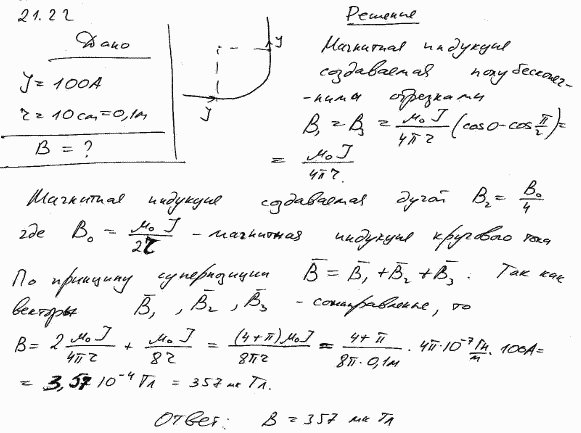 21.22
Решение
Дано
J = 100A
r = 10cm = 0,1м
B = ?
J
J
Магнитная индукция
создаваемая полубесконеч-
-ными отрезками
B₁ = B₃ = μ₀J/4πr (cos0 - cos π/2) =
= μ₀J/4πr.
Магнитная индукция создаваемая дугой B₂ = B₀/4
где B₀ = μ₀J/2r - магнитная индукция кругового тока
По принципу суперпозиции B̄ = B̄₁ + B̄₂ + B̄₃. Так как
векторы B̄₁, B̄₂, B̄₃ - сонаправление, то
B = 2 μ₀J/4πr + μ₀J/8r = (4+π)μ₀J/8πr = 4+π/8π·0,1м · 4π·10⁻⁷ Гн/м · 100А =
= 3,57·10⁻⁴ Тл = 357 мк Тл.
Ответ: B = 357 мк Тл